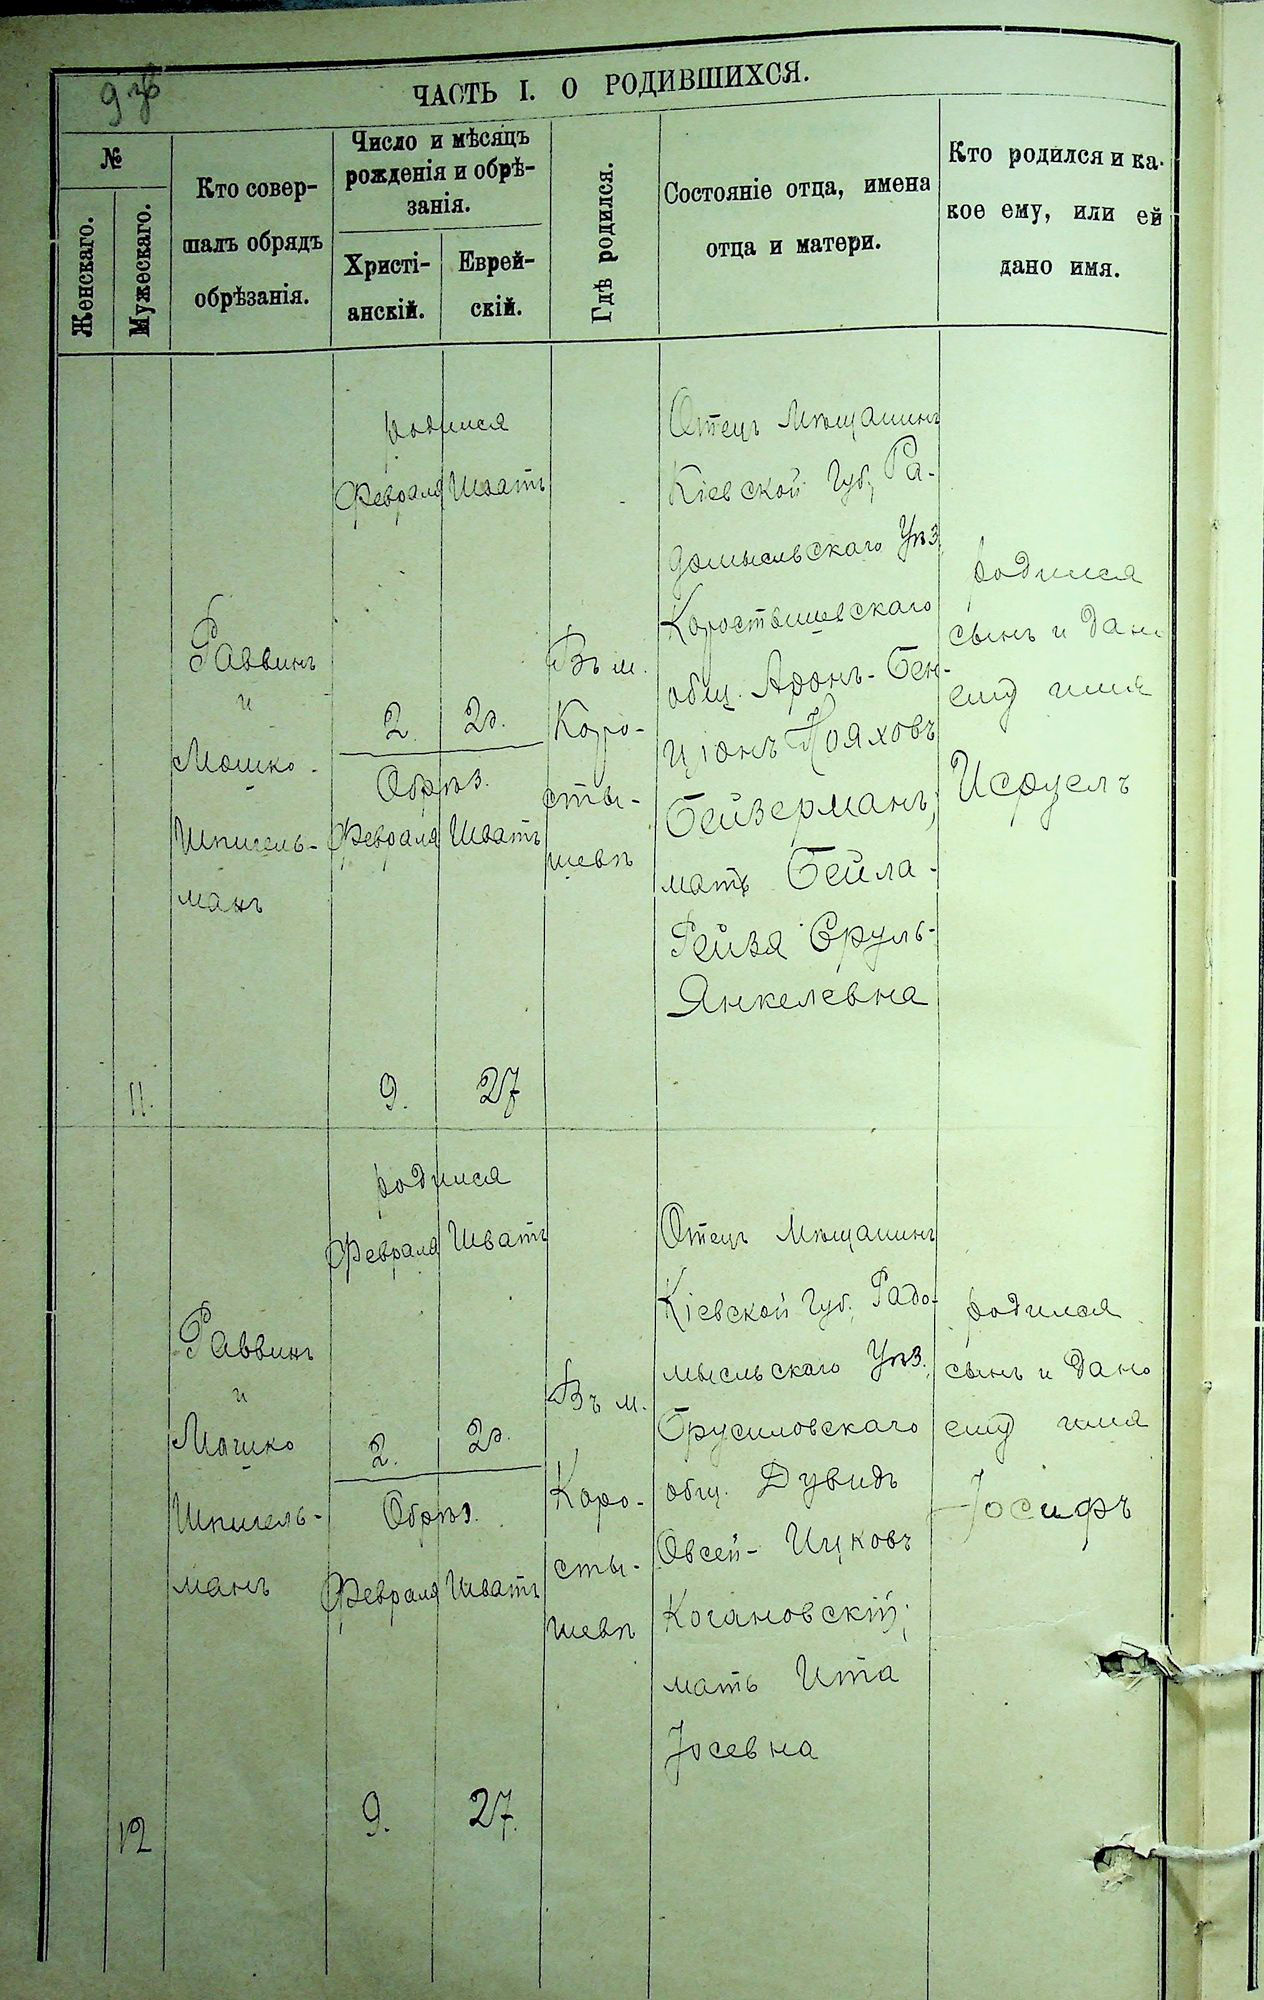 9 зв
ЧАСТЬ I. О РОДИВШИХСЯ.
№
Женскаго.
Мужескаго.
Кто совер-
шалъ обрядъ
обрѣзанія.
Число и мѣсяцъ
рожденія и обрѣ-
занія.
Христі-
анскій.
Еврей-
скій.
Гдѣ родился.
Состояніе отца, имена
отца и матери.
Кто родился и ка-
кое ему, или ей
дано имя.
11.
Раввинъ
и
Мошко
Шпигель-
манъ
родился
Февраля Шватъ
2 20.
Обрѣз.
Февраля Шватъ
9. 27
Въ м.
Коро-
сты-
шевѣ
Отецъ Мѣщанинъ
Кіевской Губ, Ра-
домысльскаго Уѣз
Коростышевскаго
общ. Аронъ-Бен-
Ціонъ Нояховъ
Бейзерманъ,
мать Бейла-
Рейзя Сруль-
Янкелевна
родился
сынъ и дано
ему имя
Исруелъ
12
Раввинъ
и
Мошко
Шпигель-
манъ
родился
Февраля Шватъ
2. 20.
Обрѣз.
Февраля Шватъ
9. 27.
Въ м.
Коро-
сты-
шевѣ
Отецъ Мѣщанинъ
Кіевской Губ. Радо-
мысльскаго Уѣз.
Брусиловскаго
общ. Дувидъ
Овсей-Ицковъ
Когановскій;
мать Ита
Іосевна
родился
сынъ и дано
ему имя
Іосифъ